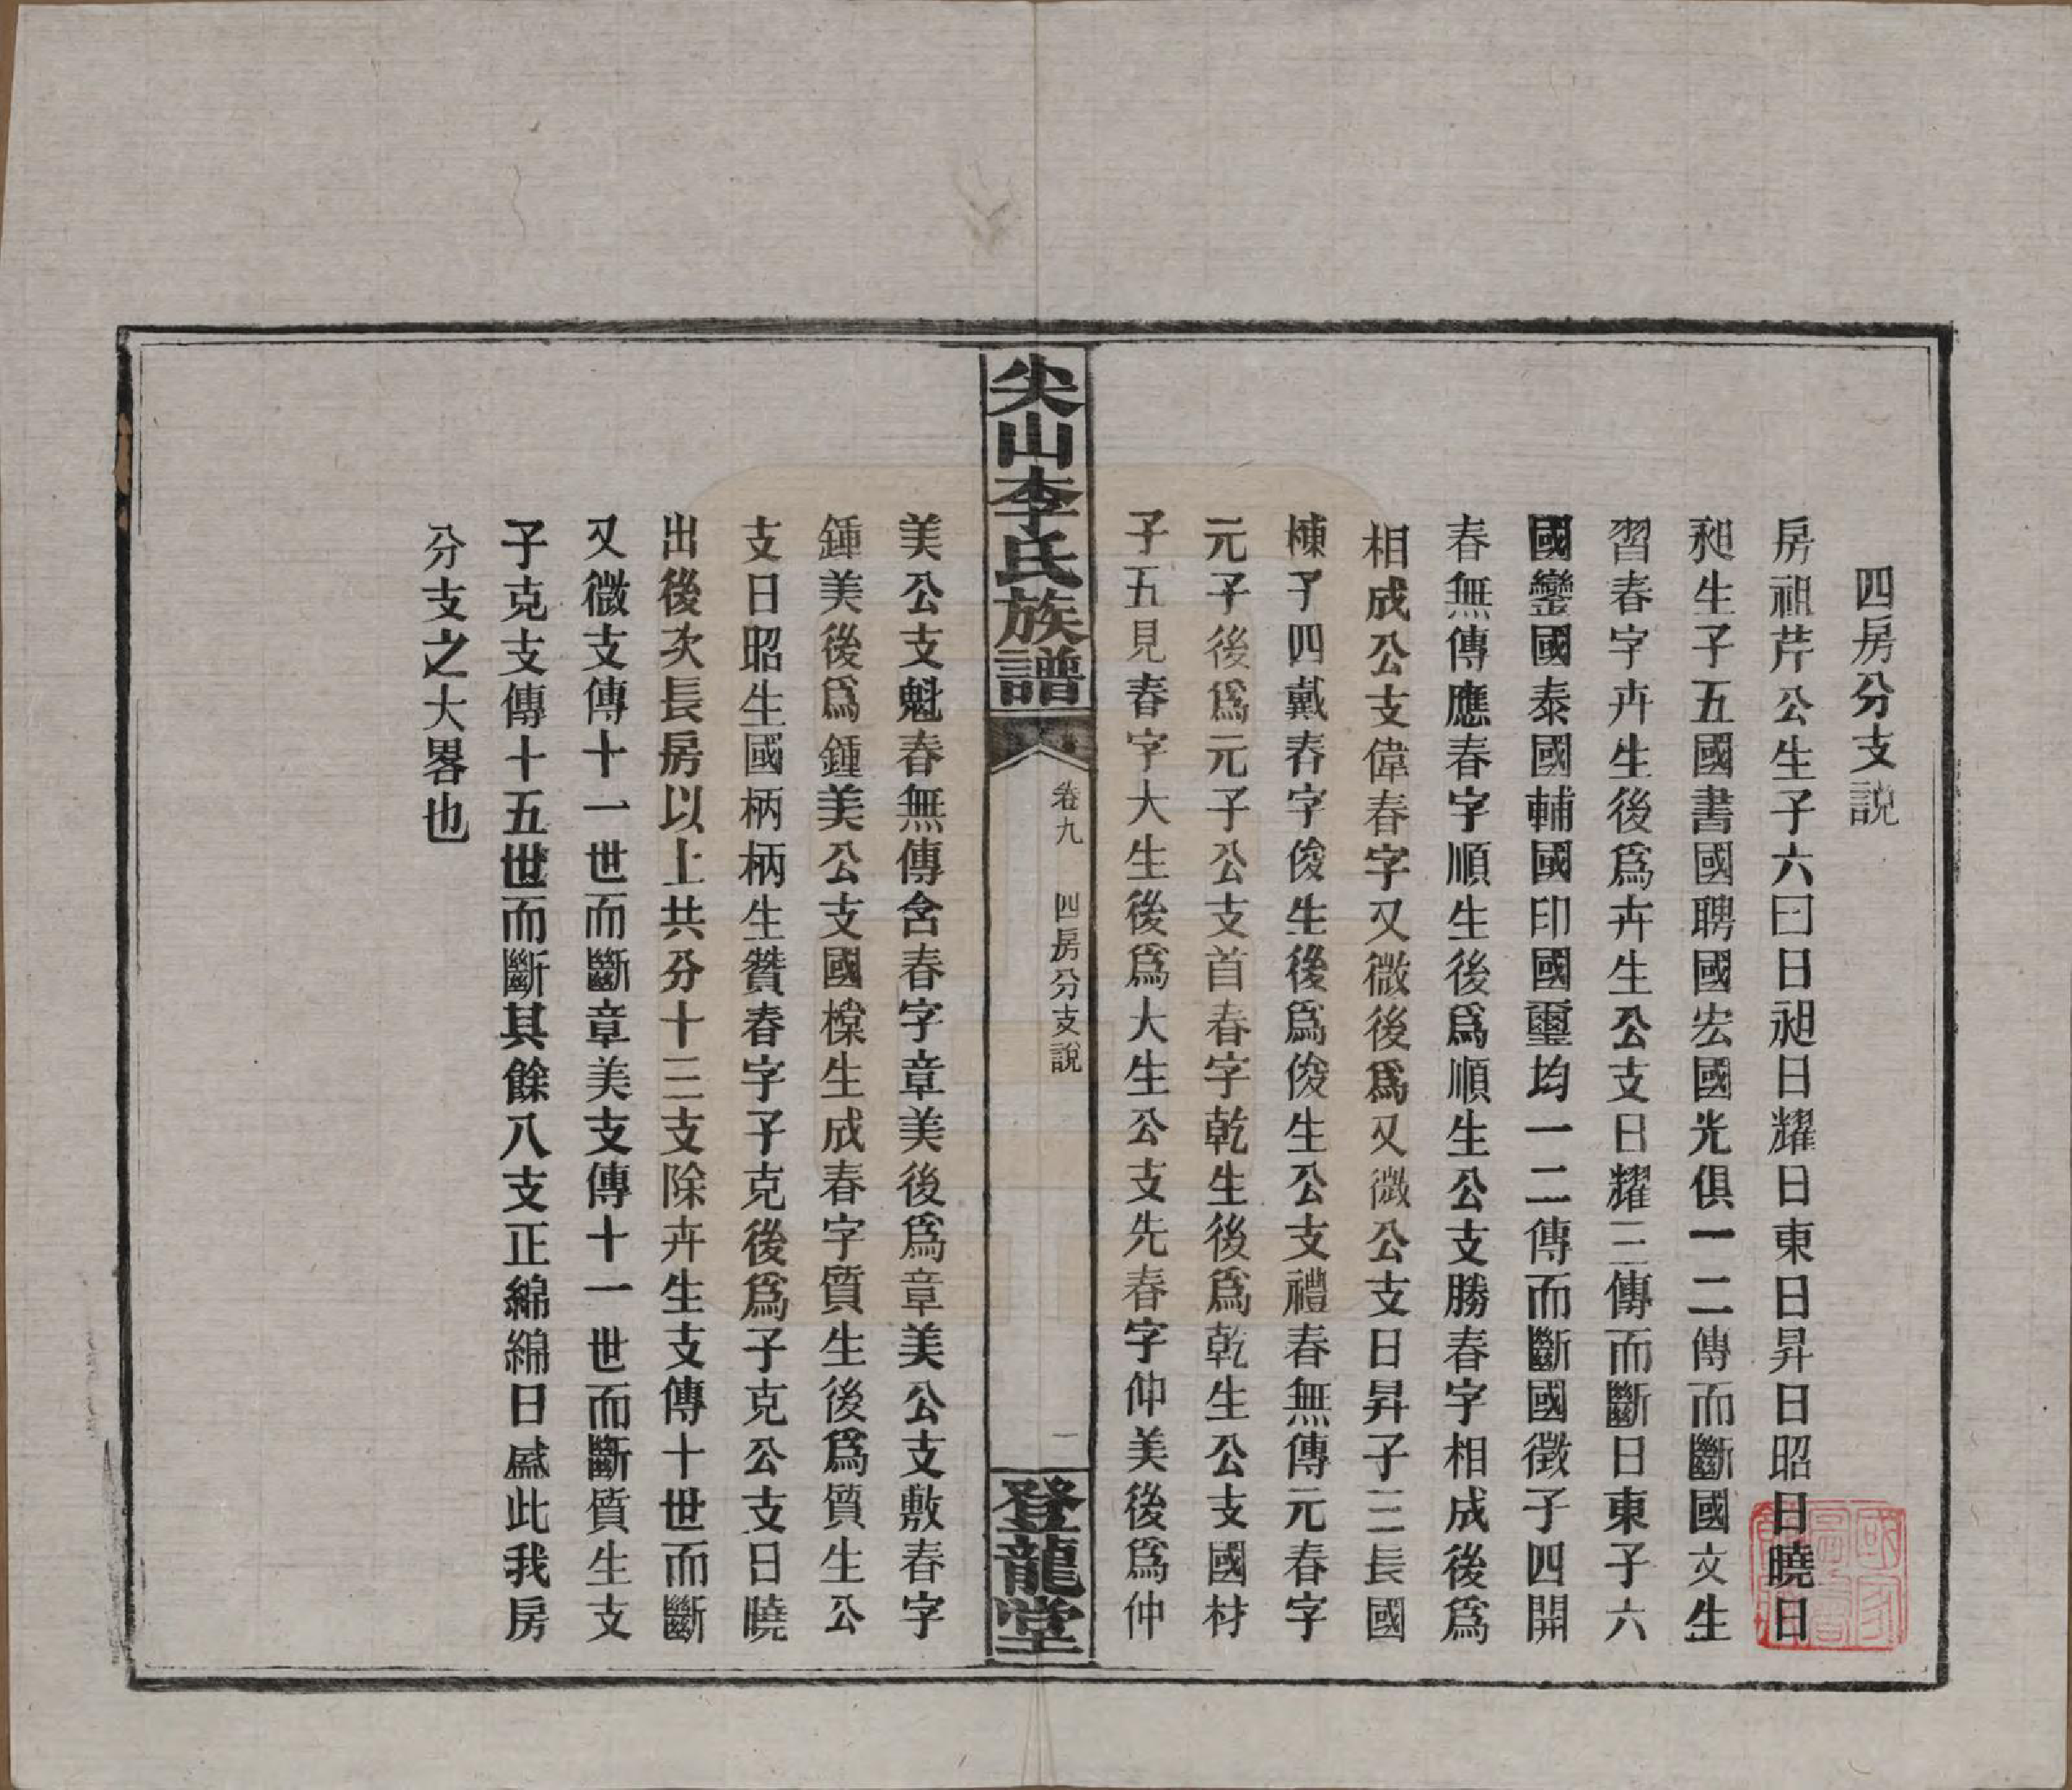 四房分支說
房祖芹公生子六曰日昶日耀日東日昇日昭日曉日
昶生子五國書國聘國宏國光俱一二傳而斷國文生
習春字卉生後爲卉生公支日耀三傳而斷日東子六
國鑾國泰國輔國印國璽均一二傳而斷國徵子四開
春無傳應春字順生後爲順生公支勝春字相成後爲
相成公支偉春字又微後爲又微公支日昇子三長國
棟子四戴春字俊生後爲俊生公支禮春無傳元春字
元子後爲元子公支首春字乾生後爲乾生公支國材
子五見春字大生後爲大生公支先春字仰美後爲仲
尖山李氏族譜
卷九 四房分支說
一
登龍堂
美公支魁春無傳含春字章美後爲章美公支敷春字
鍾美後爲鍾美公支國檪生成春字質生後爲質生公
支日昭生國柄柄生贊春字子克後爲子克公支日曉
出後次長房以上共分十三支除卉生支傳十世而斷
又微支傳十一世而斷章美支傳十一世而斷質生支
子克支傳十五世而斷其餘八支正綿綿日盛此我房
分支之大畧也